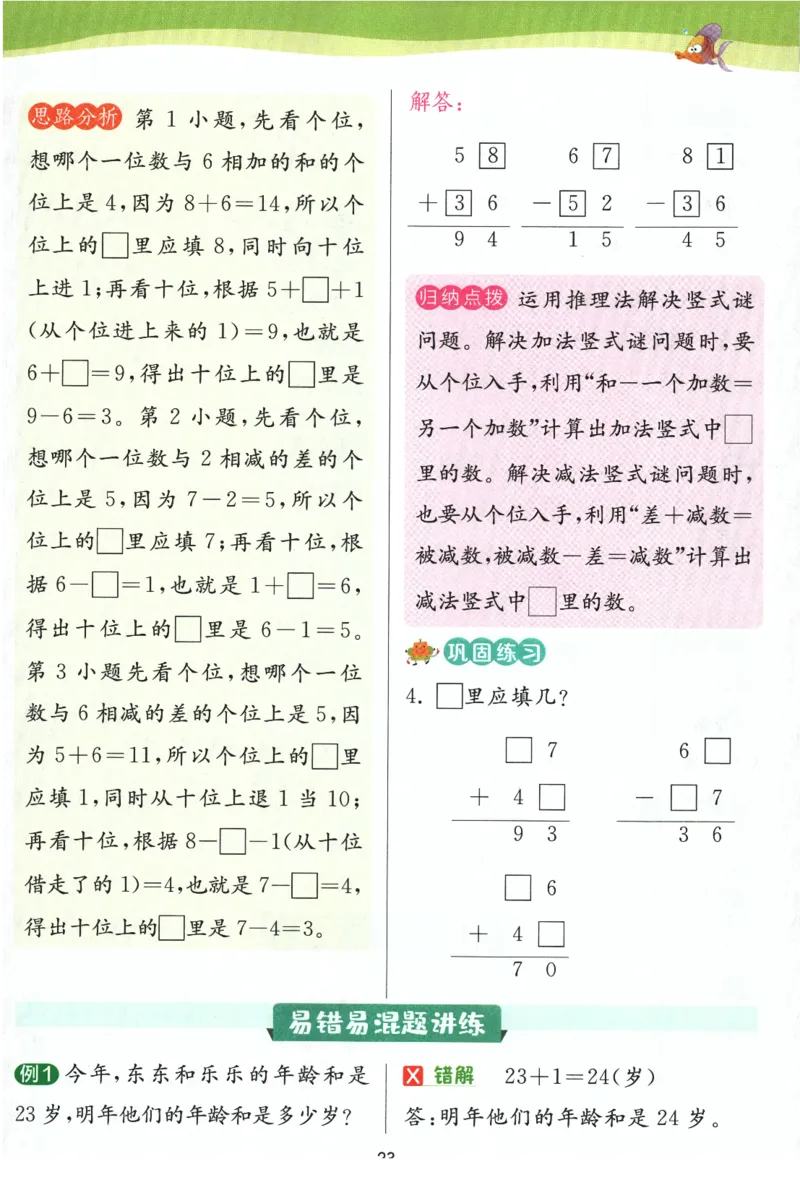 思路分析 第 1 小题,先看个位,
想哪个一位数与 6 相加的和的个
位上是 4,因为 8+6=14,所以个
位上的□里应填 8,同时向十位
上进 1;再看十位,根据 5+□+1
(从个位进上来的 1)=9,也就是
6+□=9,得出十位上的□里是
9-6=3。第 2 小题,先看个位,
想哪个一位数与 2 相减的差的个
位上是 5,因为 7-2=5,所以个
位上的□里应填 7;再看十位,根
据 6-□=1,也就是 1+□=6,
得出十位上的□里是 6-1=5。
第 3 小题先看个位,想哪个一位
数与 6 相减的差的个位上是 5,因
为 5+6=11,所以个位上的□里
应填 1,同时从十位上退 1 当 10;
再看十位,根据 8-□-1(从十位
借走了的 1)=4,也就是 7-□=4,
得出十位上的□里是 7-4=3。
解答:
5 8 6 7 8 1
+ 3 6 - 5 2 - 3 6
9 4 1 5 4 5
归纳点拨 运用推理法解决竖式谜
问题。解决加法竖式谜问题时,要
从个位入手,利用“和-一个加数=
另一个加数”计算出加法竖式中□
里的数。解决减法竖式谜问题时,
也要从个位入手,利用“差+减数=
被减数,被减数-差=减数”计算出
减法竖式中□里的数。
巩固练习
4. □里应填几?
□ 7 6 □
+ 4 □ - □ 7
9 3 3 6
□ 6
+ 4 □
7 0
易错易混题讲练
例1 今年,东东和乐乐的年龄和是
23 岁,明年他们的年龄和是多少岁?
X 错解 23+1=24(岁)
答:明年他们的年龄和是 24 岁。
23